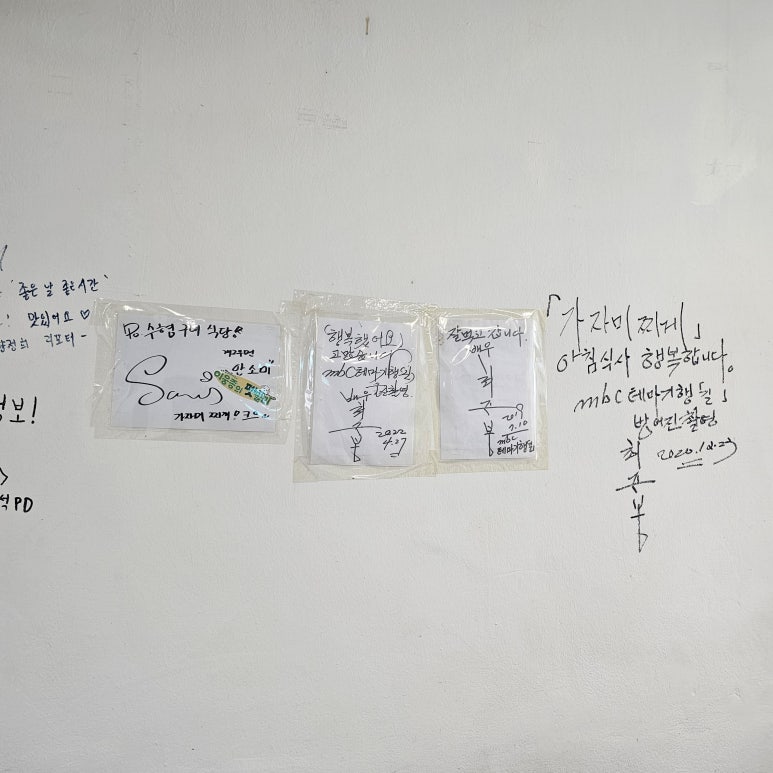 좋은 날 좋은 시간
맛있어요 ♡
리포터 -
PD
수협구내 식당
개그우먼
안소미"
가자미 찌개
행복했어요
고맙습니다
mbc(테마기행 길)
배우
최
주
봉
2022
4.27
잘먹고 갑니다.
배우
최
주
봉
2019
7.10
mbc
테마기행 길
「가자미찌게」
아침식사 행복합니다.
mbc 테마기행「길」
방어진 촬영
최
주
봉
2020.12.23